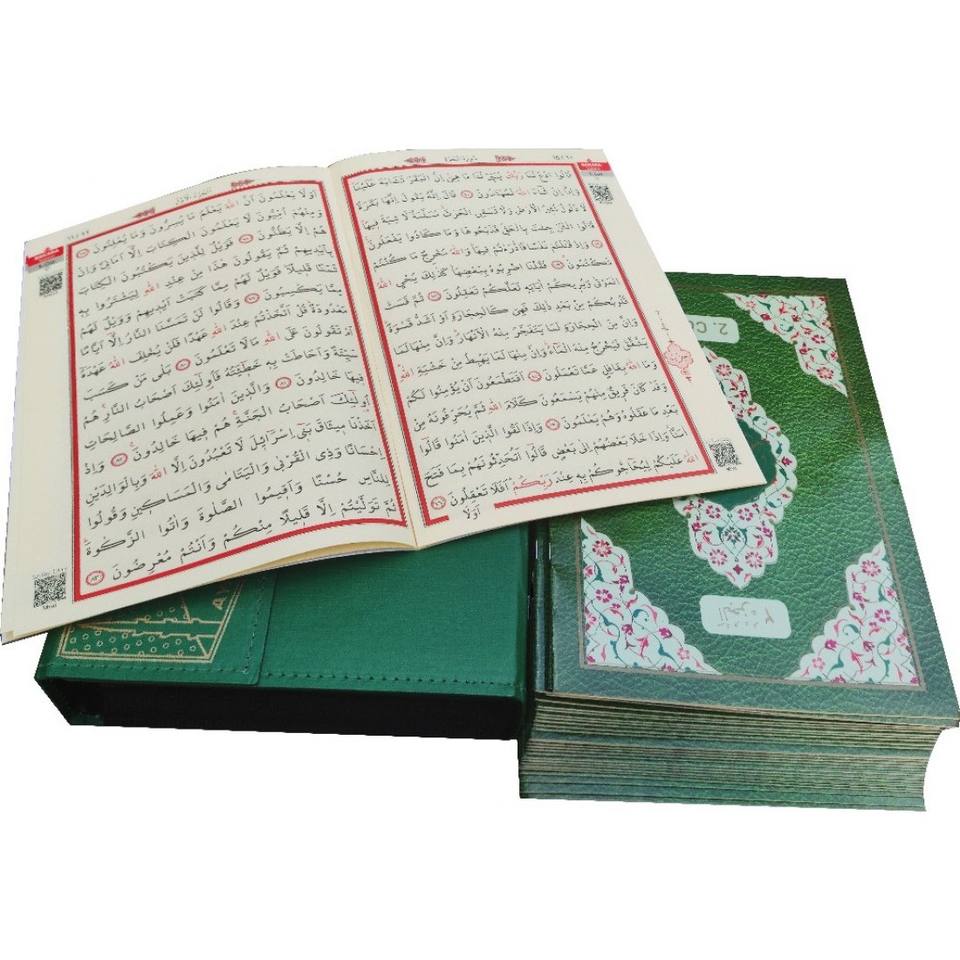 سُورَةُ الْبَقَرَةِ
قَالُوا ادْعُ لَنَا رَبَّكَ يُبَيِّنْ لَنَا مَا هِيَ اِنَّ الْبَقَرَ تَشَابَهَ عَلَيْنَا
وَاِنَّا اِنْ شَاءَ اللّٰهُ لَمُهْتَدُونَ ٧٠ قَالَ اِنَّهُ يَقُولُ اِنَّهَا بَقَرَةٌ
لَا ذَلُولٌ تُثِيرُ الْاَرْضَ وَلَا تَسْقِي الْحَرْثَ مُسَلَّمَةٌ لَا شِيَةَ فِيهَا
قَالُوا الْـٰٔنَ جِئْتَ بِالْحَقِّ فَذَبَحُوهَا وَمَا كَادُوا يَفْعَلُونَ ٧١
وَاِذْ قَتَلْتُمْ نَفْسًا فَادّٰرَءْتُمْ فِيهَا وَاللّٰهُ مُخْرِجٌ مَا كُنْتُمْ
تَكْتُمُونَ ٧٢ فَقُلْنَا اضْرِبُوهُ بِبَعْضِهَا كَذٰلِكَ يُحْيِي اللّٰهُ
الْمَوْتٰى وَيُرِيكُمْ اٰيَاتِهِ لَعَلَّكُمْ تَعْقِلُونَ ٧٣ ثُمَّ قَسَتْ
قُلُوبُكُمْ مِنْ بَعْدِ ذٰلِكَ فَهِيَ كَالْحِجَارَةِ اَوْ اَشَدُّ قَسْوَةً
وَاِنَّ مِنَ الْحِجَارَةِ لَمَا يَتَفَجَّرُ مِنْهُ الْاَنْهَارُ وَاِنَّ مِنْهَا لَمَا
يَشَّقَّقُ فَيَخْرُجُ مِنْهُ الْمَاءُ وَاِنَّ مِنْهَا لَمَا يَهْبِطُ مِنْ خَشْيَةِ اللّٰهِ
وَمَا اللّٰهُ بِغَافِلٍ عَمَّا تَعْمَلُونَ ٧٤ اَفَتَطْمَعُونَ اَنْ يُؤْمِنُوا لَكُمْ
وَقَدْ كَانَ فَرِيقٌ مِنْهُمْ يَسْمَعُونَ كَلَامَ اللّٰهِ ثُمَّ يُحَرِّفُونَهُ مِنْ
بَعْدِ مَا عَقَلُوهُ وَهُمْ يَعْلَمُونَ ٧٥ وَاِذَا لَقُوا الَّذِينَ اٰمَنُوا قَالُوا
اٰمَنَّا وَاِذَا خَلَا بَعْضُهُمْ اِلٰى بَعْضٍ قَالُوا اَتُحَدِّثُونَهُمْ بِمَا فَتَحَ
اللّٰهُ عَلَيْكُمْ لِيُحَاجُّوكُمْ بِهِ عِنْدَ رَبِّكُمْ اَفَلَا تَعْقِلُونَ ٧٦
اَوَلَا
اَلْجُزْءُ الْاَوَّلُ
اَوَلَا يَعْلَمُونَ اَنَّ اللّٰهَ يَعْلَمُ مَا يُسِرُّونَ وَمَا يُعْلِنُونَ ٧٧
وَمِنْهُمْ اُمِّيُّونَ لَا يَعْلَمُونَ الْكِتَابَ اِلَّا اَمَانِيَّ وَاِنْ
هُمْ اِلَّا يَظُنُّونَ ٧٨ فَوَيْلٌ لِلَّذِينَ يَكْتُبُونَ الْكِتَابَ
بِاَيْدِيهِمْ ثُمَّ يَقُولُونَ هٰذَا مِنْ عِنْدِ اللّٰهِ لِيَشْتَرُوا بِهِ
ثَمَنًا قَلِيلًا فَوَيْلٌ لَهُمْ مِمَّا كَتَبَتْ اَيْدِيهِمْ وَوَيْلٌ لَهُمْ
مِمَّا يَكْسِبُونَ ٧٩ وَقَالُوا لَنْ تَمَسَّنَا النَّارُ اِلَّا اَيَّامًا
مَعْدُودَةً قُلْ اَتَّخَذْتُمْ عِنْدَ اللّٰهِ عَهْدًا فَلَنْ يُخْلِفَ اللّٰهُ عَهْدَهُ
اَمْ تَقُولُونَ عَلَى اللّٰهِ مَا لَا تَعْلَمُونَ ٨٠ بَلٰى مَنْ كَسَبَ
سَيِّئَةً وَاَحَاطَتْ بِهِ خَطِيئَتُهُ فَاُولٰئِكَ اَصْحَابُ النَّارِ هُمْ
فِيهَا خَالِدُونَ ٨١ وَالَّذِينَ اٰمَنُوا وَعَمِلُوا الصَّالِحَاتِ
اُولٰئِكَ اَصْحَابُ الْجَنَّةِ هُمْ فِيهَا خَالِدُونَ ٨٢ وَاِذْ
اَخَذْنَا مِيثَاقَ بَنِي اِسْرَائِلَ لَا تَعْبُدُونَ اِلَّا اللّٰهَ وَبِالْوَالِدَيْنِ
اِحْسَانًا وَذِي الْقُرْبٰى وَالْيَتَامٰى وَالْمَسَاكِينِ وَقُولُوا
لِلنَّاسِ حُسْنًا وَاَقِيمُوا الصَّلٰوةَ وَاٰتُوا الزَّكٰوةَ
ثُمَّ تَوَلَّيْتُمْ اِلَّا قَلِيلًا مِنْكُمْ وَاَنْتُمْ مُعْرِضُونَ ٨٣